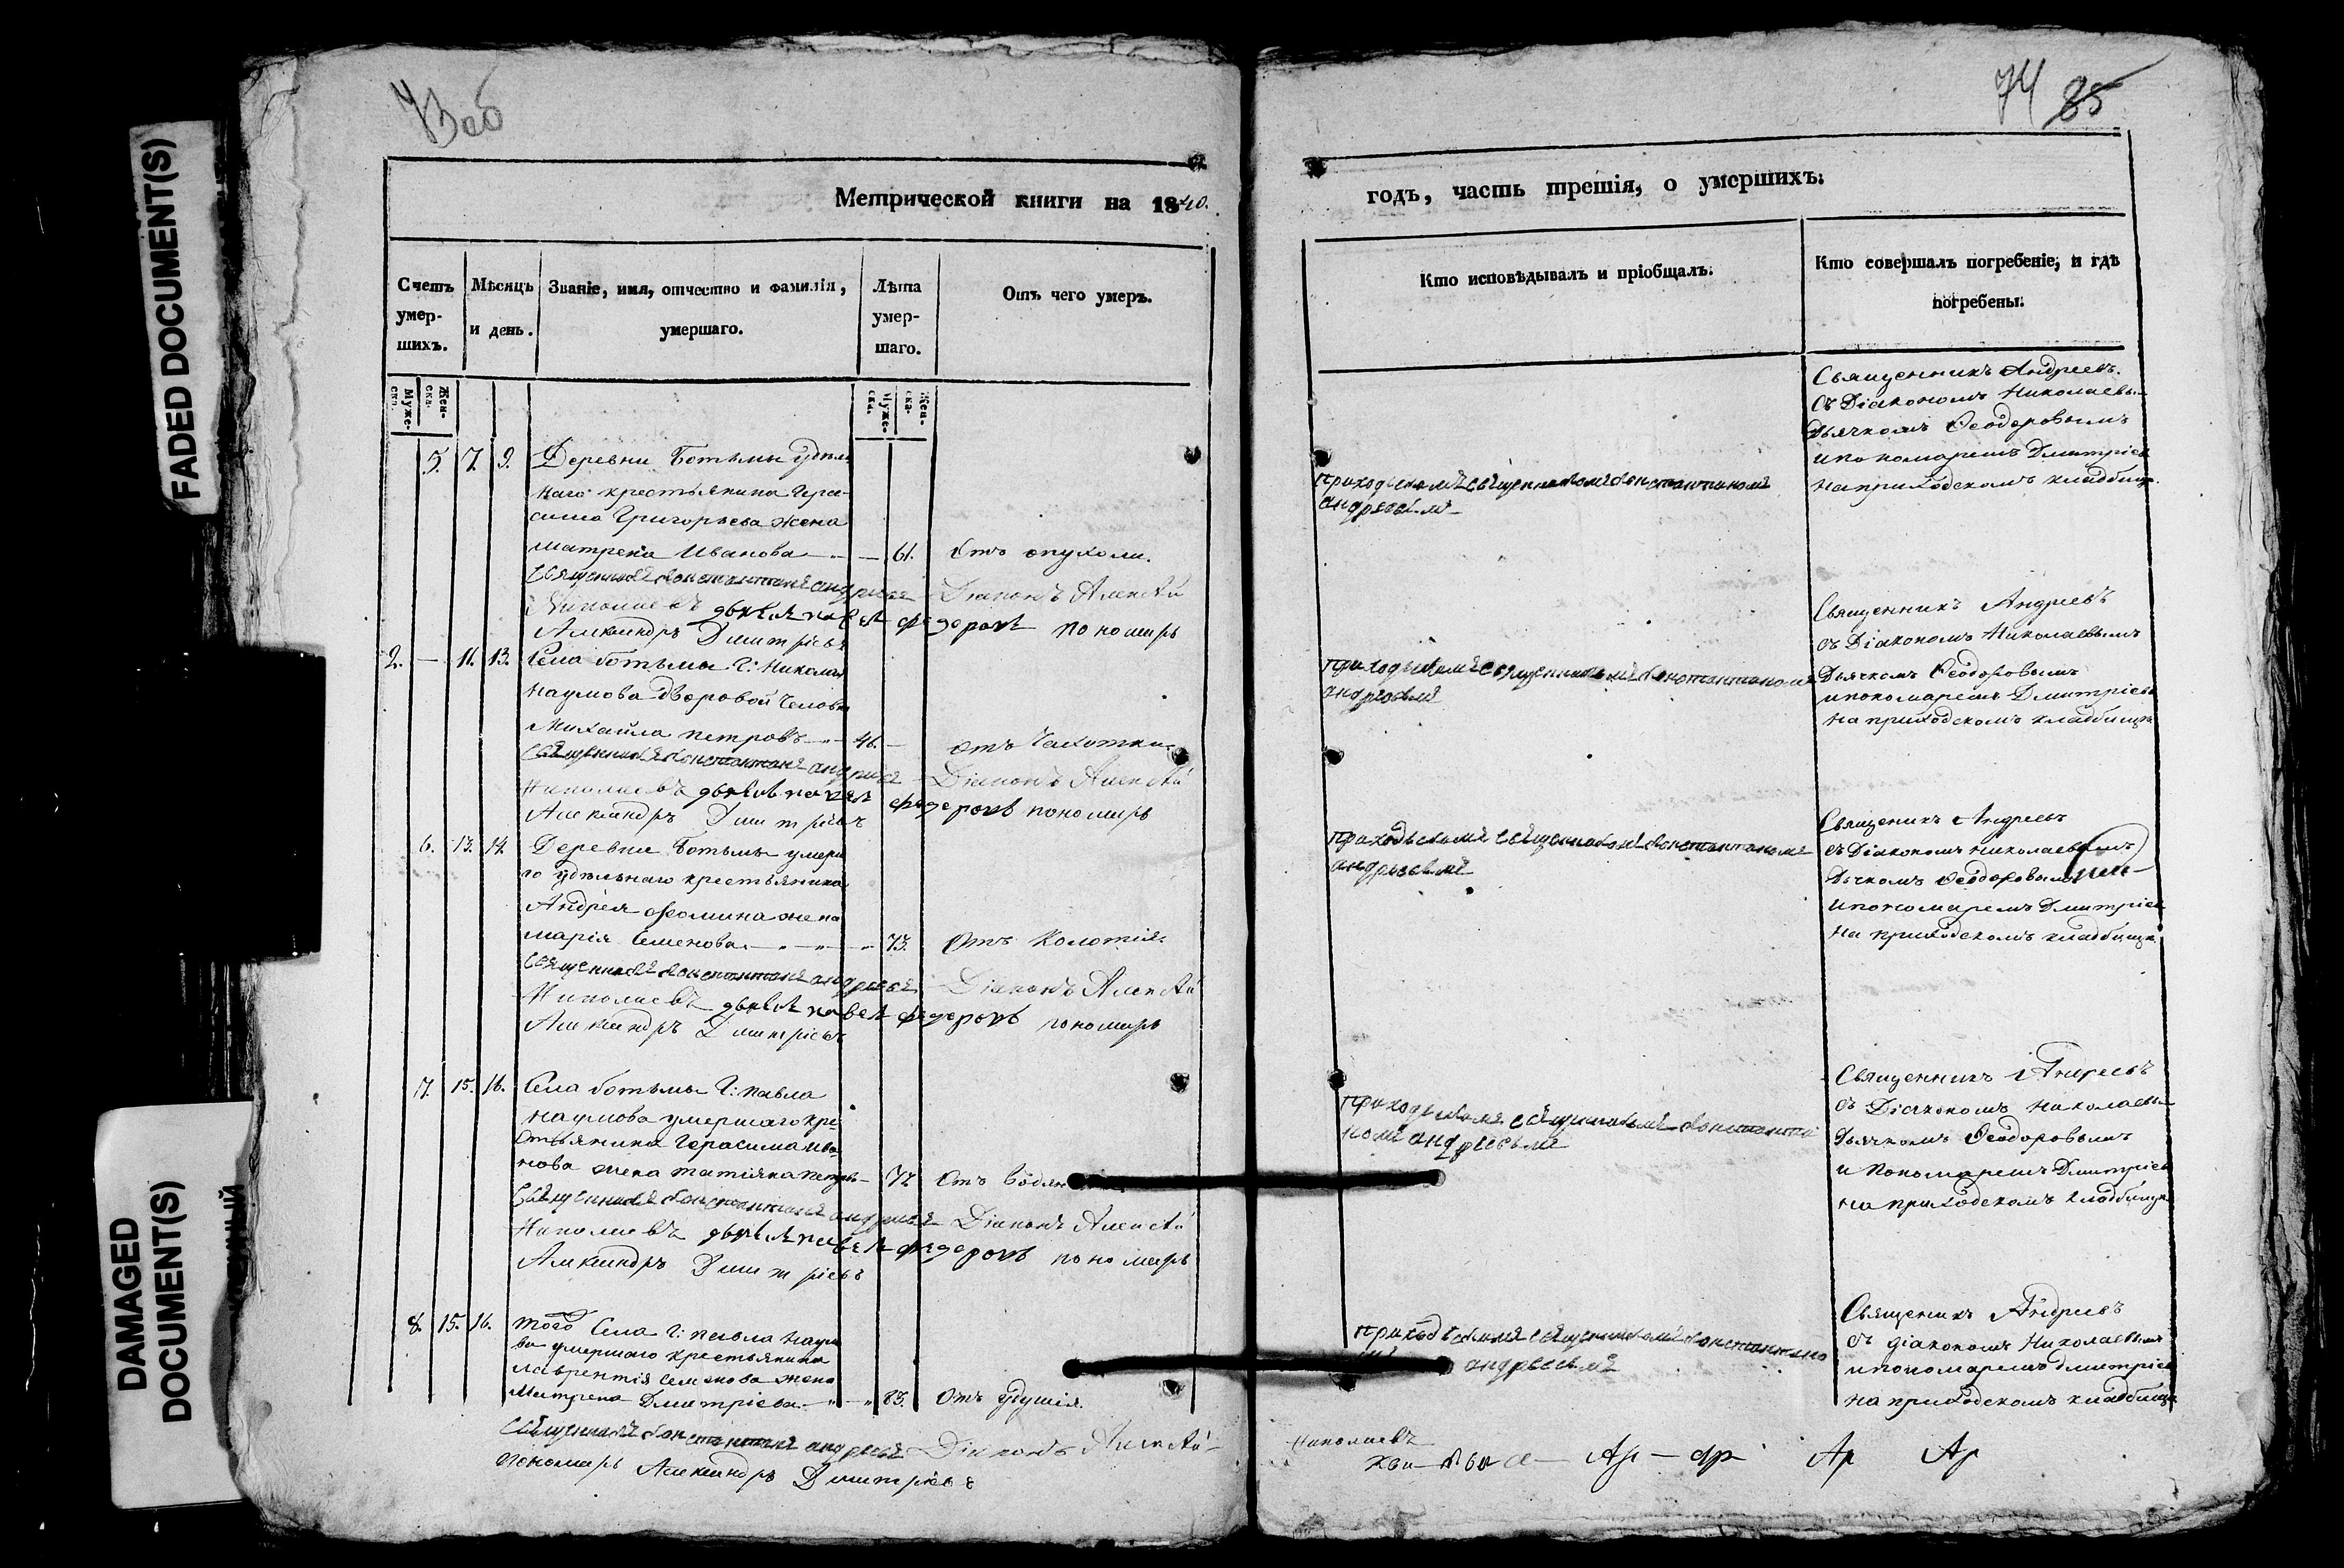 FADED DOCUMENT(S)
DAMAGED
DOCUMENT(S)
73об
Метрической книги на 1840.
Счетъ умер-шихъ.
Мѣсяцъ и день.
Званіе, имя, отчество и фамилія, умершаго.
Лѣта умер-шаго.
Отъ чего умеръ.
Муже-ска.
Жен-ска.
Муже-ска.
Жен-ска.
5. 7. 9. Деревни Ботьмы удѣль
наго крестьянина Гера-
сима Григорьева жена
Матрена Иванова — 61. Отъ опухоли.
Священникъ Константинъ Андреевъ Діаконъ Алексѣй
Николаевъ дьячекъ Павелъ Федоровъ пономарь
Александръ Дмитріевъ
2. — 11. 13. Села Ботьмы Г: Николая
Наумова дворовой человѣкъ
Михайла Петровъ — 46. — Отъ чахотки
Священникъ Константинъ Андреевъ Діаконъ Алексѣй
Николаевъ дьячекъ Павелъ Федоровъ пономарь
Александръ Дмитріевъ
6. 13. 14. Деревни Ботьмы умерша
го удѣльнаго крестьянина
Андрея Фомина жена
Марія Семенова — 73. Отъ колотія.
Священникъ Константинъ Андреевъ Діаконъ Алексѣй
Николаевъ дьячекъ Павелъ Федоровъ пономарь
Александръ Дмитріевъ
7. 15. 16. Села Ботьмы Г: Павла
Наумова умершаго кре
стьянина Герасима Ива
нова жена Татіяна Петрова — 72 Отъ
Священникъ Константинъ Андреевъ Діаконъ Алексѣй
Николаевъ дьячекъ Павелъ Федоровъ пономарь
Александръ Дмитріевъ
8. 15. 16. Того села Г: Павла Наумо
ва умершаго крестьянина
Лаврентія Семенова жена
Матрена Дмитріева — 83. Отъ удушія.
Священникъ Константинъ Андреевъ Діаконъ Алексѣй
пономарь Александръ Дмитріевъ
74 85
годъ, часть третія, о умершихъ.
Кто исповѣдывалъ и пріобщалъ.
Кто совершалъ погребеніе, и гдѣ
погребены.
Приходскимъ священникомъ Константиномъ
Андреевымъ
Священникъ Андреевъ
съ Діакономъ Николаевы
Дьячкомъ Ѳеодоровымъ
и пономаремъ Дмитріев
на приходскомъ кладбище
Приходскимъ священникомъ Константиномъ
Андреевымъ
Священникъ Андреевъ
съ Діакономъ Николаевымъ
Дьячкомъ Ѳеодоровымъ
и пономаремъ Дмитріевы
на приходскомъ кладбище
Приходскимъ священникомъ Константиномъ
Андреевымъ
Священикъ Андреевъ
съ Діакономъ Николаевымъ
Дьячкомъ Ѳеодоровымъ
и пономаремъ Дмитріев
на приходскомъ кладбище
Приходскимъ священникомъ Константи
номъ Андреевымъ
Священникъ Андреевъ
съ Діакономъ Николаевы
Дьячкомъ Ѳеодоровымъ
и пономаремъ Дмитріев
на приходскомъ кладбище
Приходскимъ священникомъ Константино
Андреевымъ
Священикъ Андреевъ
съ діакономъ Николаевымъ
и пономаремъ Дмитріев
на приходскомъ кладбище
Николаевъ